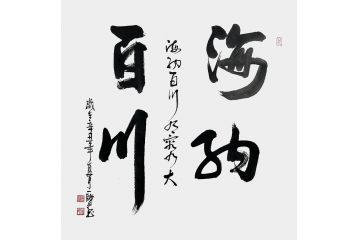 海纳
百川
海纳百川有容乃大
歲在辛丑年